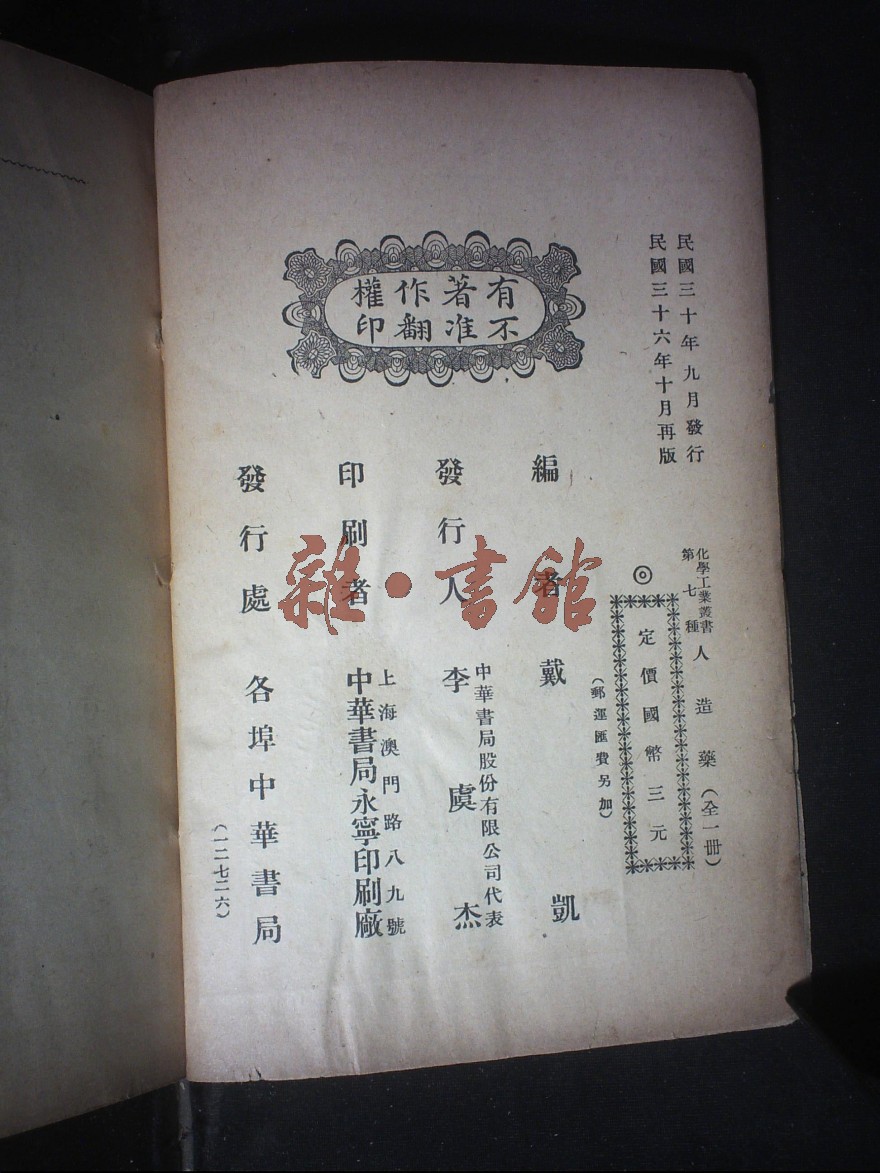 民國三十年九月發行
民國三十六年十月再版
有著作權
不准翻印
化學工業叢書
第七種
人造藥(全一冊)
◎定價國幣三元
(郵運匯費另加)
編者 戴凱
發行人 李虞杰
中華書局股份有限公司代表
印刷者 中華書局永寧印刷廠
上海澳門路八九號
發行處 各埠中華書局
(一二七二六)
雜·書館